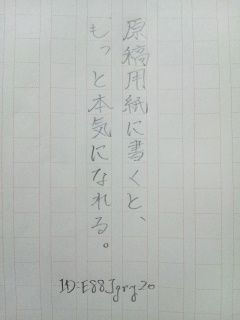 原稿用紙に書くと、
もっと本気になれる。
ID:E88Jgrg20